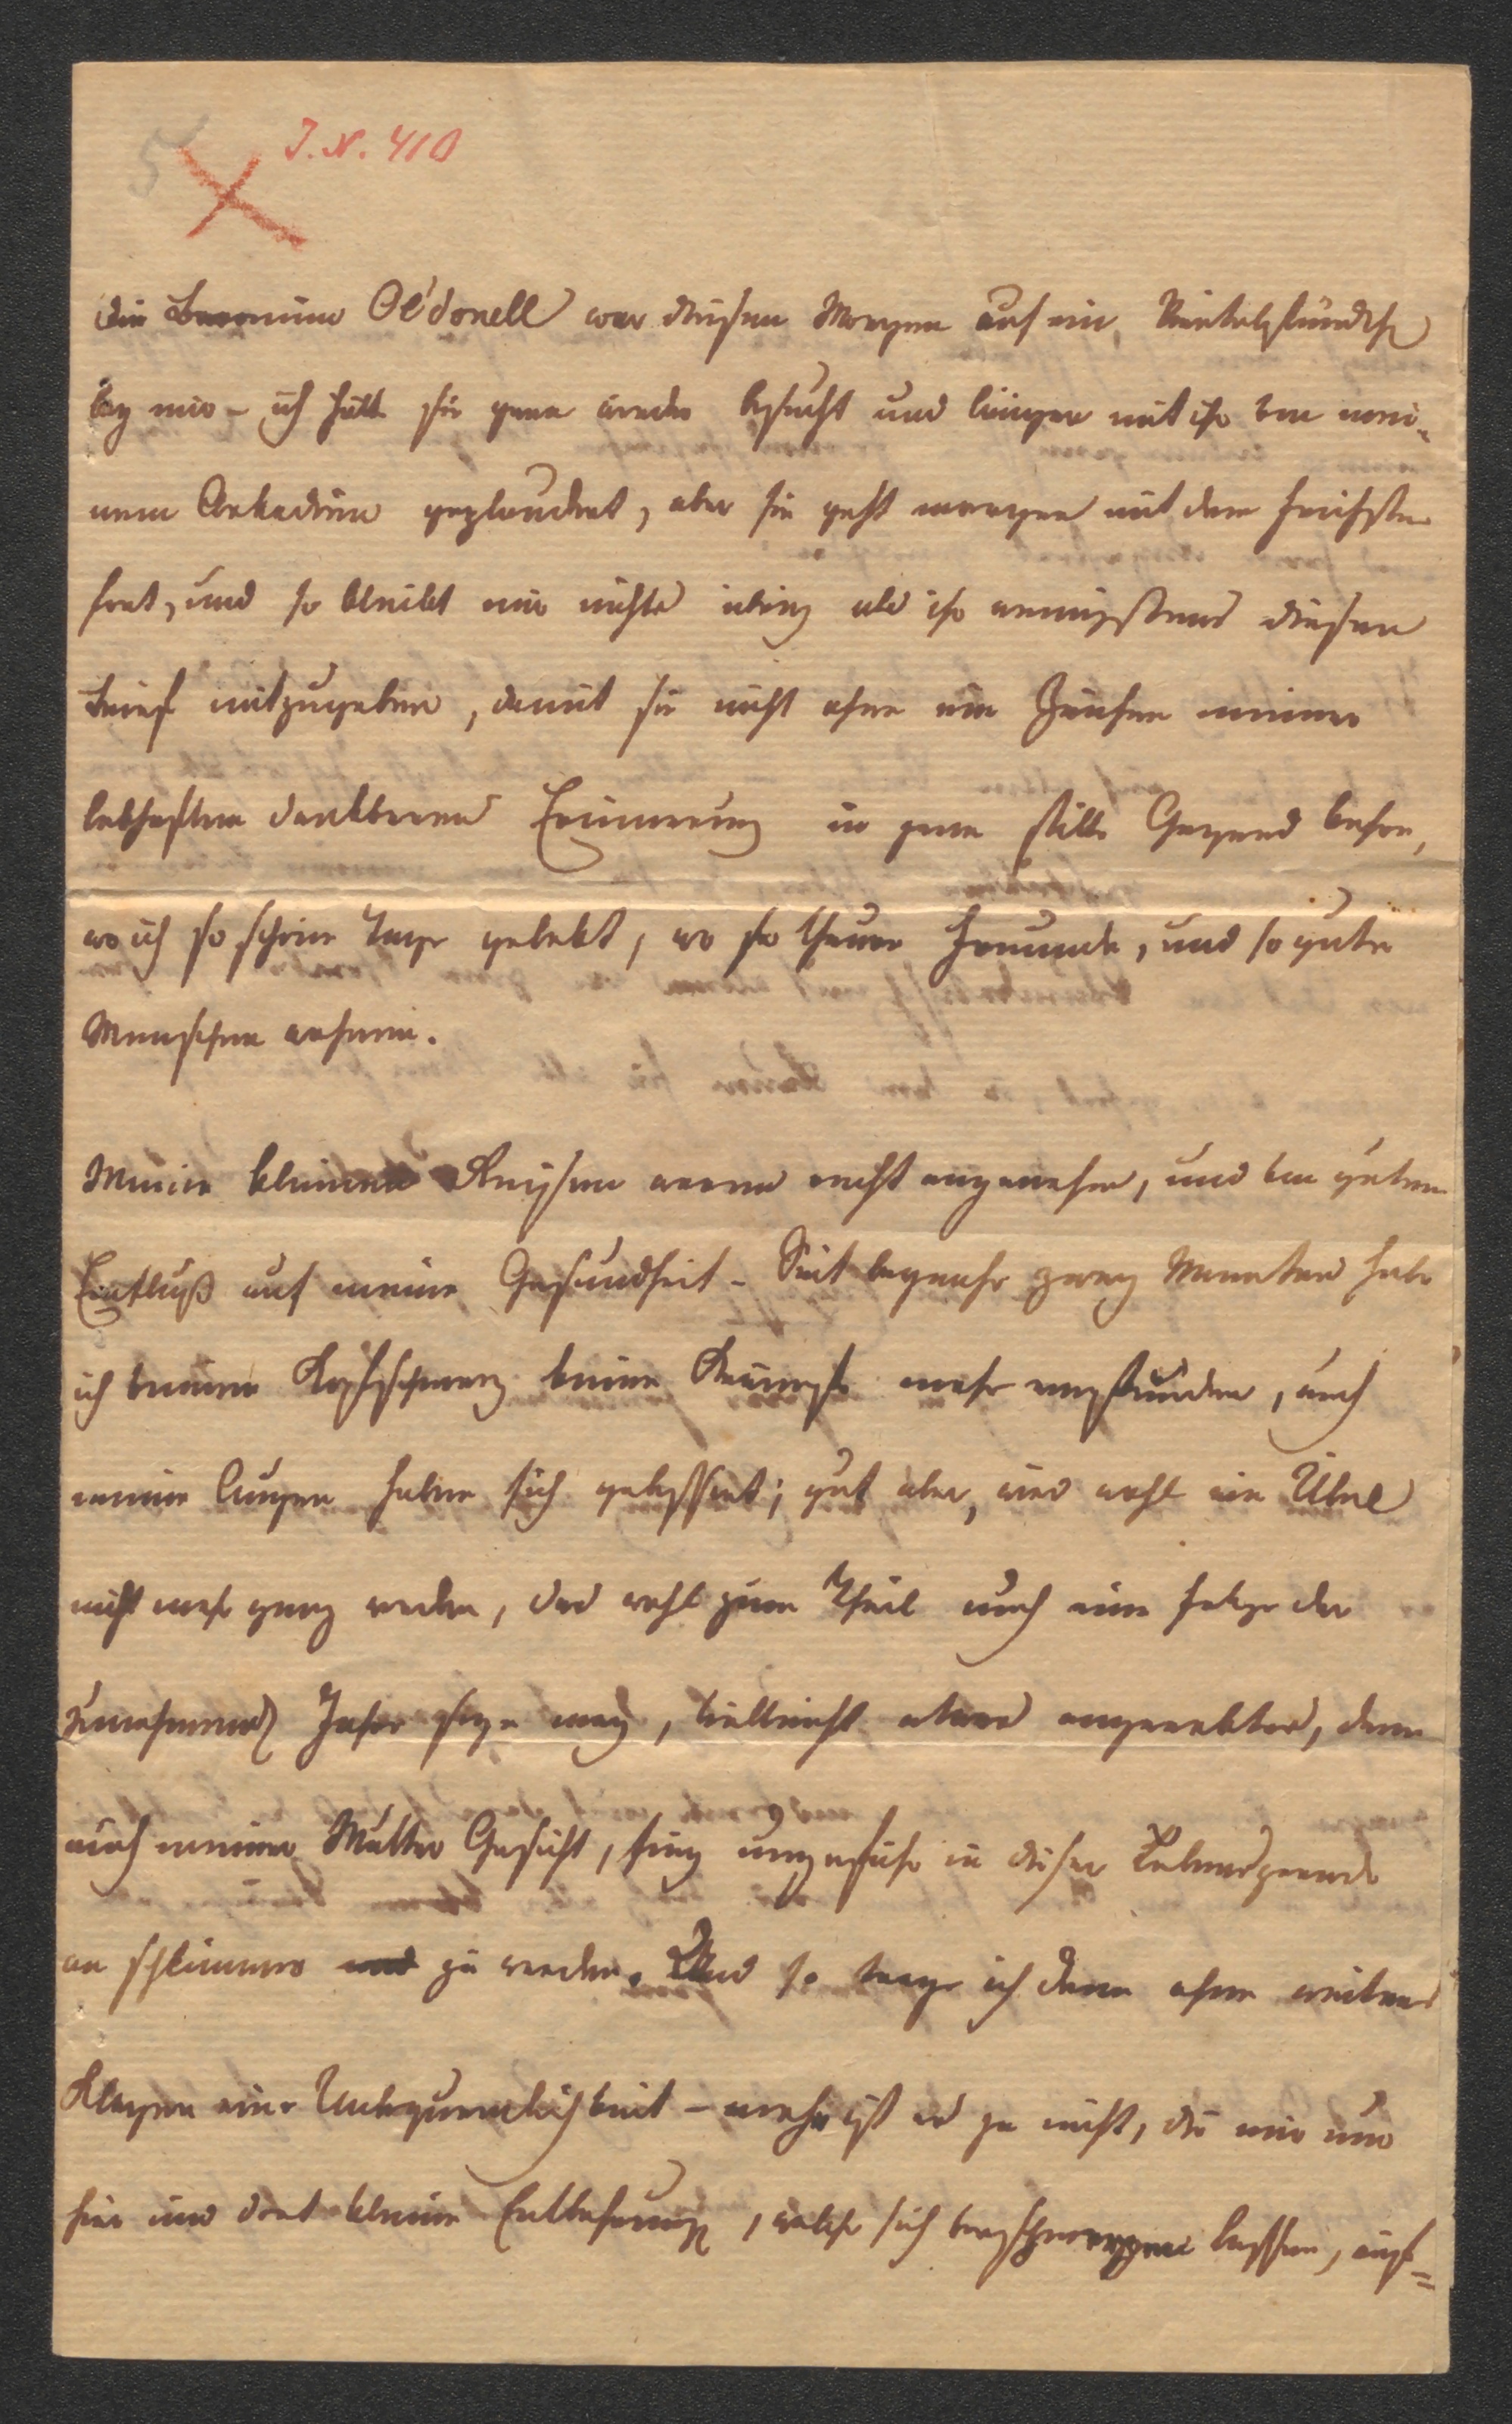 5
J. N. 410
Die Baronine Oe'donell war diesen Morgen auf ein Viertelstündch
bey mir – ich hätt sie gern wieder besucht und länger mit ihr von mei=
nem Arkadien geplaudert, aber sie geht morgen mit dem frühsten
fort, und so bleibt mir nichts übrig als ihr wenigstens diesen
Brief mitzugeben, damit sie nicht ohne ein Zeichen meiner
lebhaften dankbaren Erinnerung in jene stille Gegend kehre,
wo ich so schöne Tage gelebt, wo so theure Freunde, und so gute
Menschen wohnen.
Meine kleinen Reisen waren recht angenehm, und von gutem
Einfluß auf meine Gesundheit – Seit beynahe zwey Monaten habe
ich keinen Kopfschmerz keine Krämpfe mehr empfunden, auch
meine Augen haben sich gebessert; gut aber, wird wohl ein Übel
nicht mehr ganz werden, das wohl zum Theil auch eine Folge der
zunehmend Jahre seyn mag, vielleicht etwas angeerbtes, denn
auch meiner Mutter Gesicht, fing ungefähr in dieser Lebensperiode
an schlimmer zu werden. Und so trage ich denn ohne weiters
Klagen eine Unbequemlichkeit – mehr ist es ja nicht, die mir nur
hier und dort kleine Entbehrung, welche sich verschmerzen lassen, auf=